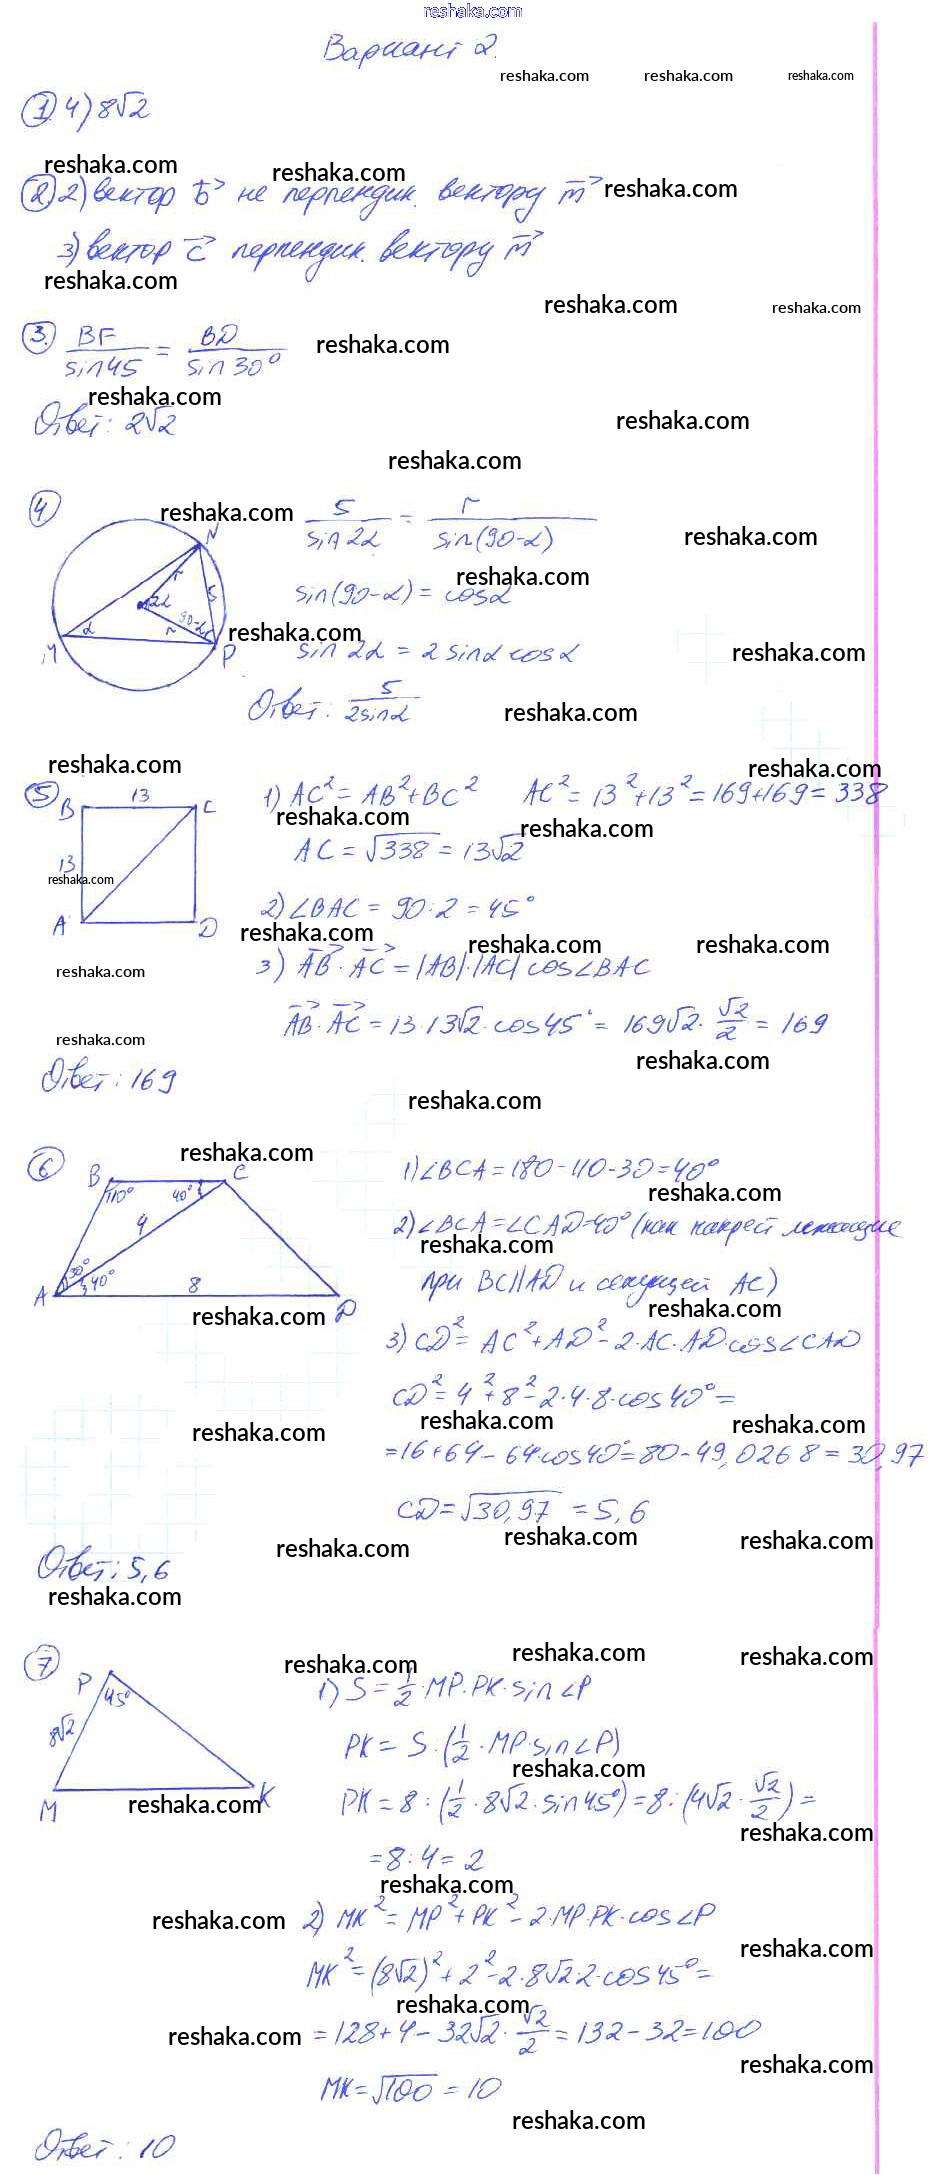 reshaka.com
Вариант 2.
reshaka.com reshaka.com reshaka.com
① 4) 8√2
reshaka.com reshaka.com
② 2) вектор b⃗ не перпендик. вектору m⃗ reshaka.com
3) вектор c⃗ перпендик. вектору m⃗
reshaka.com
reshaka.com reshaka.com
③. BF/sin45 = BD/sin30° reshaka.com
reshaka.com
Ответ: 2√2 reshaka.com
reshaka.com
④ reshaka.com 5/sin2α = r/sin(90-α) reshaka.com
N r 5 2α 90-α r α M P
reshaka.com
sin(90-α) = cosα
reshaka.com
sin 2α = 2 sinα cosα reshaka.com
Ответ: 5/2sinα reshaka.com
reshaka.com reshaka.com
⑤ B 13 C 1) AC² = AB²+BC² AC² = 13²+13² = 169+169 = 338
reshaka.com reshaka.com
AC = √338 = 13√2
13
reshaka.com
A D 2) ∠BAC = 90:2 = 45°
reshaka.com reshaka.com reshaka.com
reshaka.com 3) AB⃗·AC⃗ = |AB|·|AC| cos∠BAC
AB⃗·AC⃗ = 13·13√2·cos45° = 169√2·√2/2 = 169
reshaka.com reshaka.com
Ответ: 169
reshaka.com
reshaka.com
⑥ B C 110° 40° 1) ∠BCA = 180-110-30 = 40°
reshaka.com
4 2) ∠BCA = ∠CAD = 40° (как накрест лежащие
reshaka.com
A 30° 40° 8 D при BC||AD и секущей AC)
reshaka.com reshaka.com
3) CD² = AC²+AD²-2·AC·AD·cos∠CAD
CD² = 4²+8²-2·4·8·cos40° =
reshaka.com reshaka.com reshaka.com
= 16+64-64·cos40° = 80-49,0268 = 30,97
CD = √30,97 = 5,6
reshaka.com reshaka.com reshaka.com
Ответ: 5,6
reshaka.com
⑦ reshaka.com reshaka.com reshaka.com
P 45° 1) S = 1/2·MP·PK·sin∠P
8√2 PK = S·(1/2·MP·sin∠P)
reshaka.com
M reshaka.com K PK = 8:(1/2·8√2·sin45°) = 8:(4√2·√2/2) =
reshaka.com
= 8:4 = 2
reshaka.com
reshaka.com 2) MK² = MP²+PK²-2·MP·PK·cos∠P
reshaka.com
MK² = (8√2)²+2²-2·8√2·2·cos45° =
reshaka.com
reshaka.com = 128+4-32√2·√2/2 = 132-32 = 100
reshaka.com
MK = √100 = 10
reshaka.com
Ответ: 10